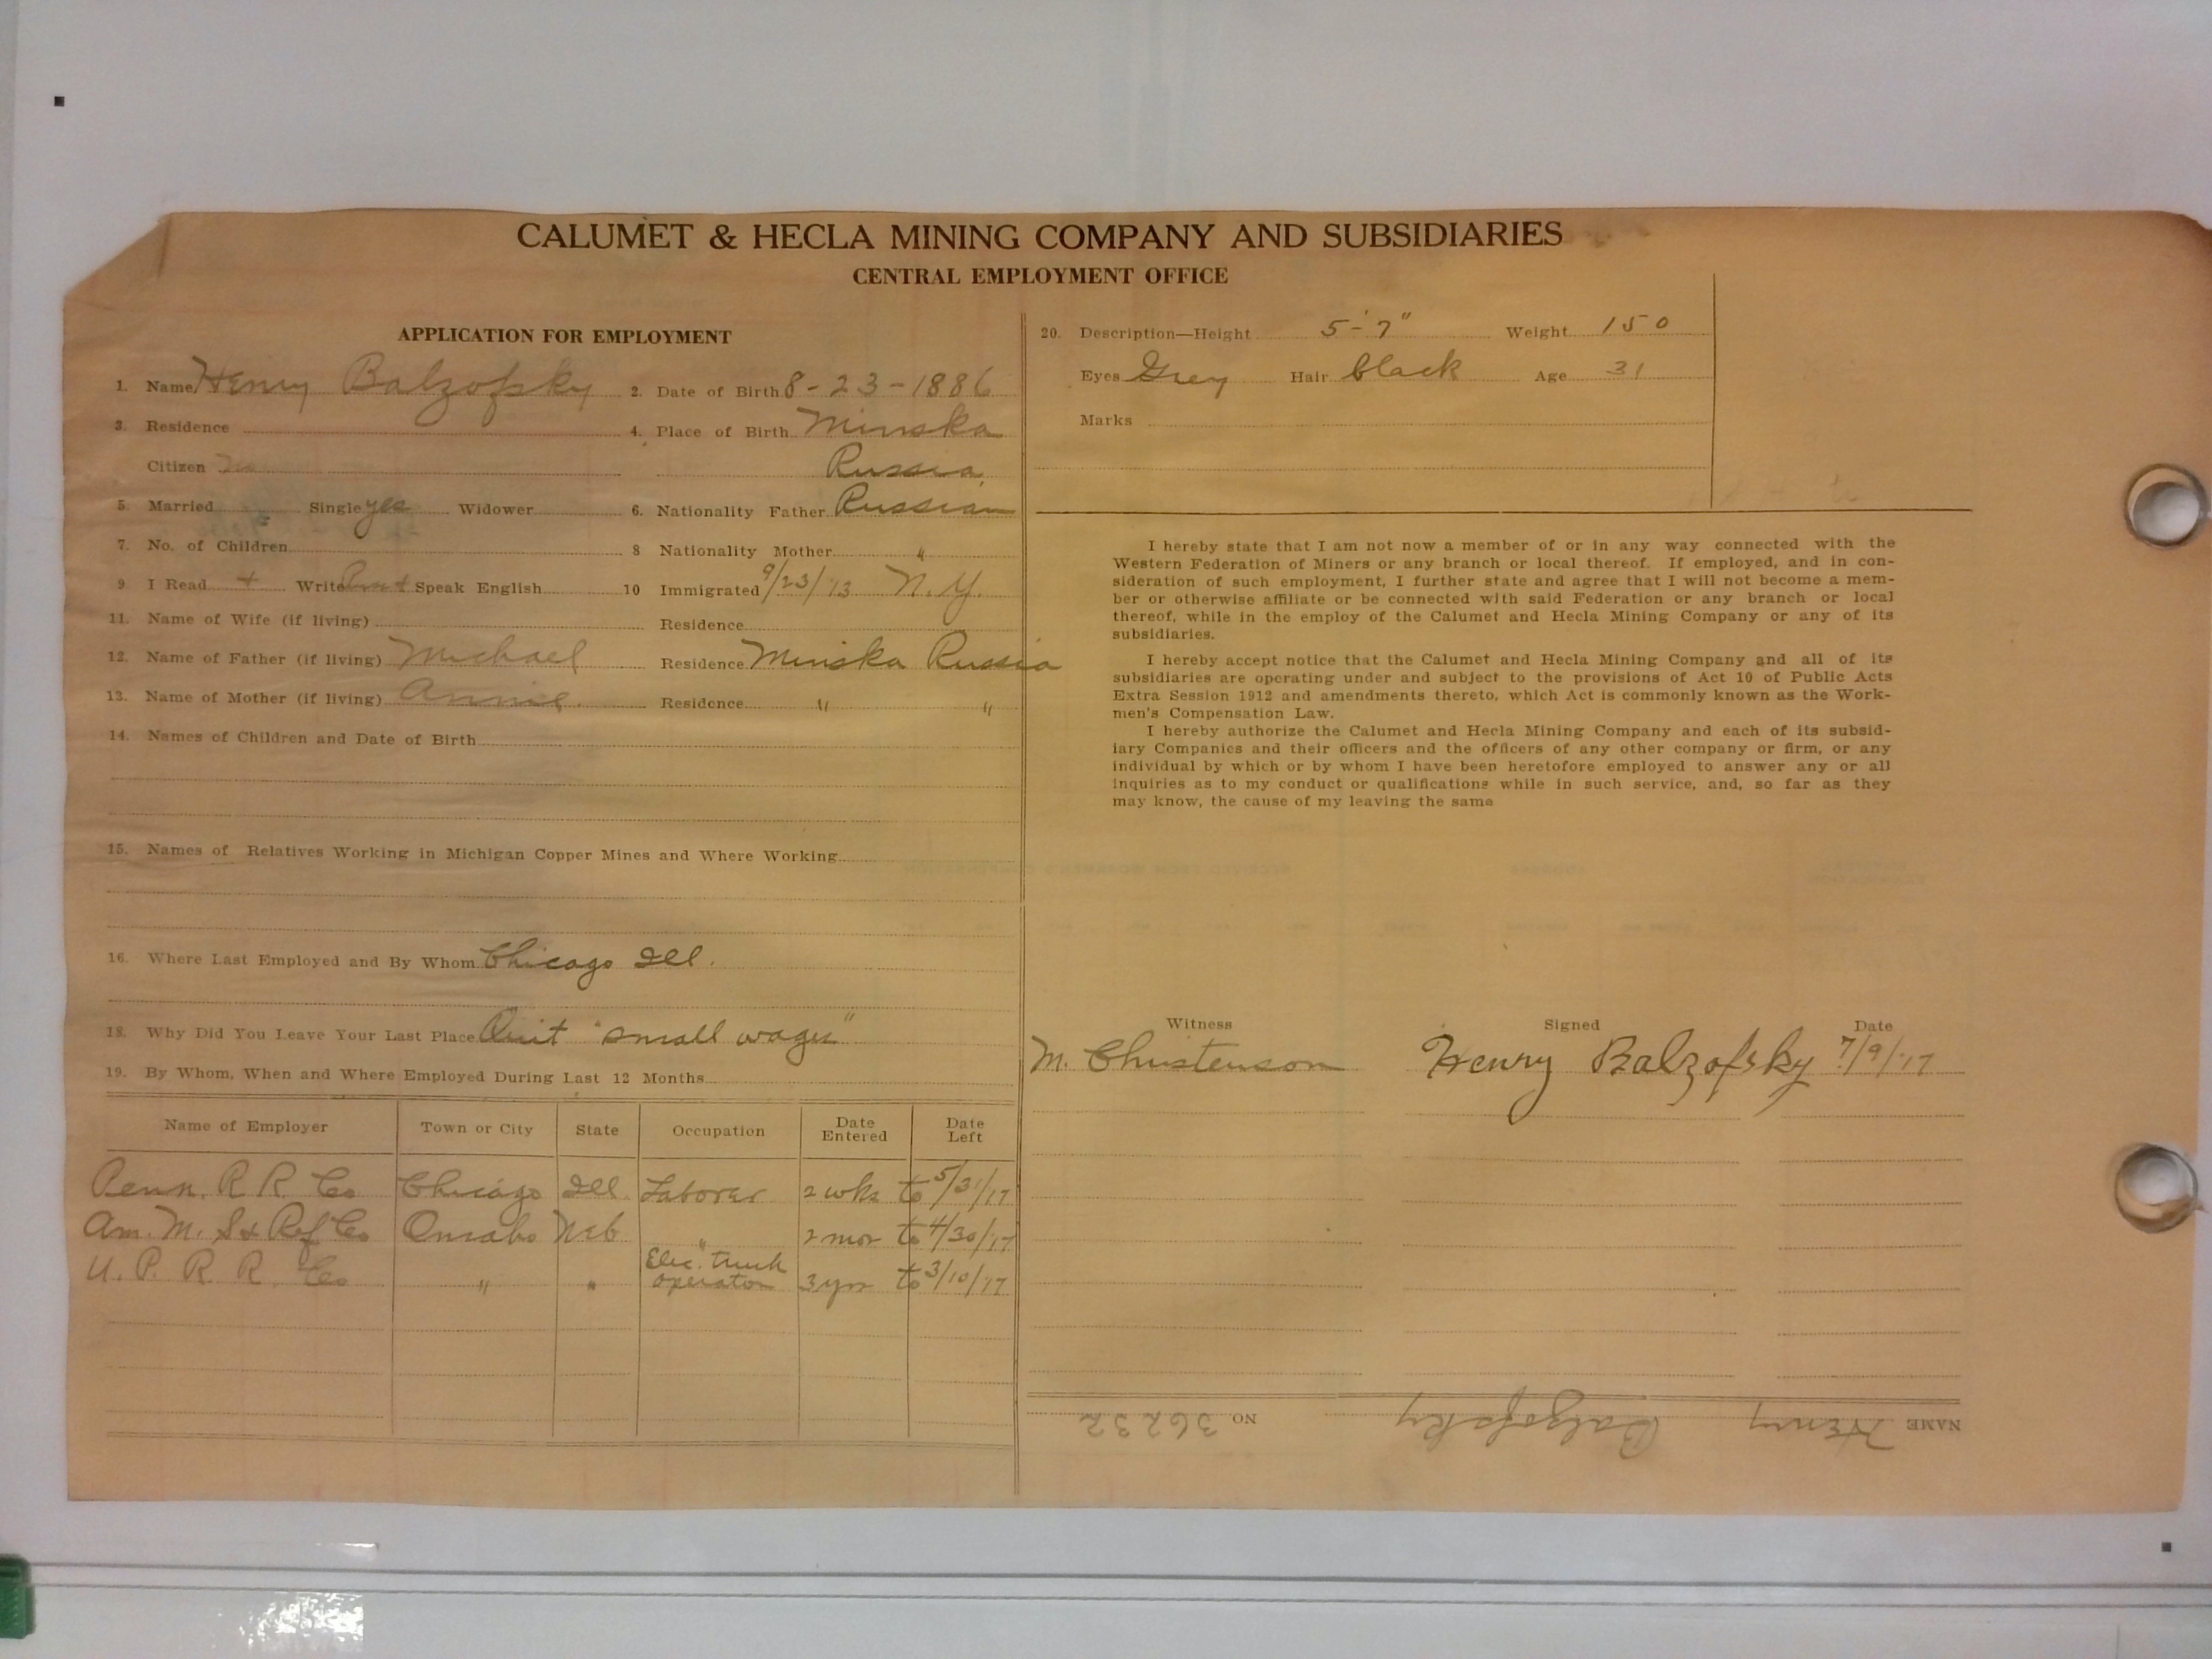 CALUMET & HECLA MINING COMPANY AND SUBSIDIARIES
CENTRAL EMPLOYMENT OFFICE
APPLICATION FOR EMPLOYMENT
1. Name Henry Balzofsky 2. Date of Birth 8-23-1886
3. Residence 4. Place of Birth Minska
Citizen No Russia
5. Married Single yes Widower 6. Nationality Father Russian
7. No. of Children 8 Nationality Mother "
9. I Read + Write Speak English 10 Immigrated 9/23/'13 N.Y.
11. Name of Wife (if living) Residence
12. Name of Father (if living) Michael Residence Minska Russia
13. Name of Mother (if living) Annie Residence " "
14. Names of Children and Date of Birth
15. Names of Relatives Working in Michigan Copper Mines and Where Working
16. Where Last Employed and By Whom Chicago Ill.
18. Why Did You Leave Your Last Place Quit "small wages"
19. By Whom, When and Where Employed During Last 12 Months
Name of Employer Town or City State Occupation Date Entered Date Left
Penn. R R. Co Chicago Ill Laborer 2 wks to 5/31/17
Am. M. S + Ref Co Omaha Neb " 2 mos to 4/30/17
U. P. R. R. Co " " Elec. truck operator 3 yrs to 3/10/17
20. Description—Height 5'-7" Weight 150
Eyes Grey Hair black Age 31
Marks
I hereby state that I am not now a member of or in any way connected with the
Western Federation of Miners or any branch or local thereof. If employed, and in con-
sideration of such employment, I further state and agree that I will not become a mem-
ber or otherwise affiliate or be connected with said Federation or any branch or local
thereof, while in the employ of the Calumet and Hecla Mining Company or any of its
subsidiaries.
I hereby accept notice that the Calumet and Hecla Mining Company and all of its
subsidiaries are operating under and subject to the provisions of Act 10 of Public Acts
Extra Session 1912 and amendments thereto, which Act is commonly known as the Work-
men's Compensation Law.
I hereby authorize the Calumet and Hecla Mining Company and each of its subsid-
iary Companies and their officers and the officers of any other company or firm, or any
individual by which or by whom I have been heretofore employed to answer any or all
inquiries as to my conduct or qualifications while in such service, and, so far as they
may know, the cause of my leaving the same
Witness Signed Date
M. Christenson Henry Balzofsky 7/9/'17
NAME Henry Balzofsky NO 36232